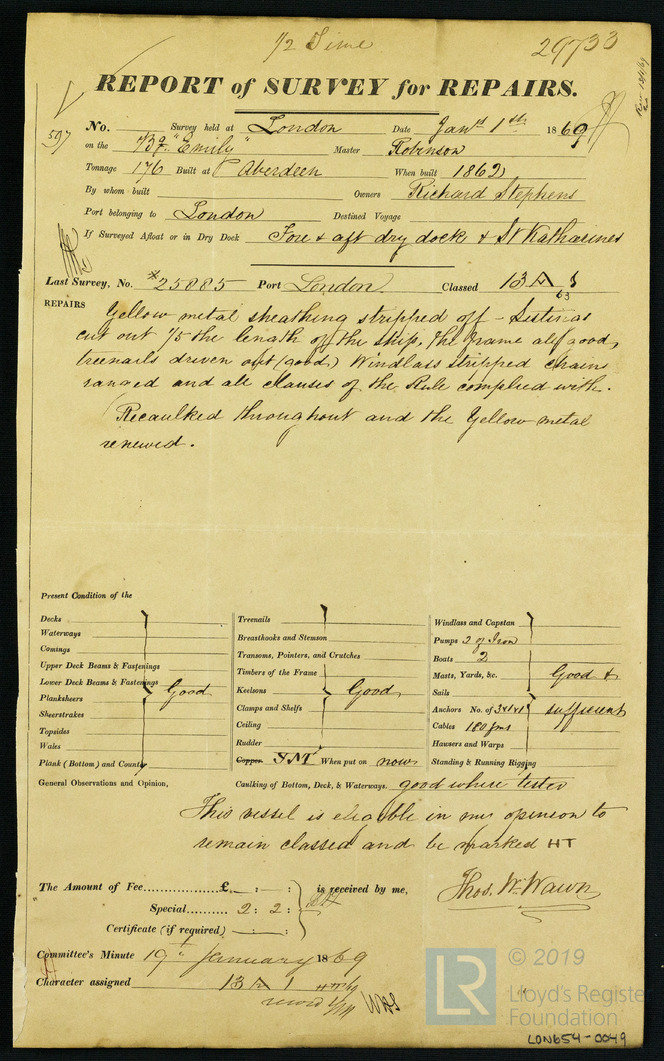 1/2 Time
29733
REPORT of SURVEY for REPAIRS.
597
No. Survey held at London Date Jany 1st 1869
on the "Emily" Master Robinson
Tonnage 176 Built at Aberdeen When built 1862
By whom built Owners Richard Stephens
Port belonging to London Destined Voyage
If Surveyed Afloat or in Dry Dock Fore & aft dry dock & St Katharines
Last Survey, No. *25885 Port London Classed 13 A 1
63
REPAIRS
Yellow metal sheathing stripped off – Listings
cut out 1/5 the length of the ship, the frame all good,
treenails driven out (good) Windlass stripped chains
ranged and all clauses of the Rule complied with.
Recaulked throughout and the Yellow metal
renewed.
Present Condition of the
Decks
Waterways
Comings
Upper Deck Beams & Fastenings
Lower Deck Beams & Fastenings
Planksheers Good
Sheerstrakes
Topsides
Wales
Plank (Bottom) and Counter
Treenails
Breasthooks and Stemson
Transoms, Pointers, and Crutches
Timbers of the Frame
Keelsons Good
Clamps and Shelfs
Ceiling
Rudder
Copper YM When put on now
Windlass and Capstan
Pumps 2 of Iron
Boats 2
Masts, Yards, &c. Good &
Sails
Anchors No. of 3x1x1 sufficient
Cables 180 fms
Hawsers and Warps
Standing & Running Rigging
General Observations and Opinion, Caulking of Bottom, Deck, & Waterways. good where tested
This vessel is eligible in my opinion to
remain classed and be marked HT
The Amount of Fee............... £ : : is received by me,
Special.......... 2: 2:
Thos. W. Wawn
Certificate (if required) : :
Committee's Minute 19th January 1869
Character assigned 13 A 1
© 2019
LR
Lloyd's Register
Foundation
LON654-0049